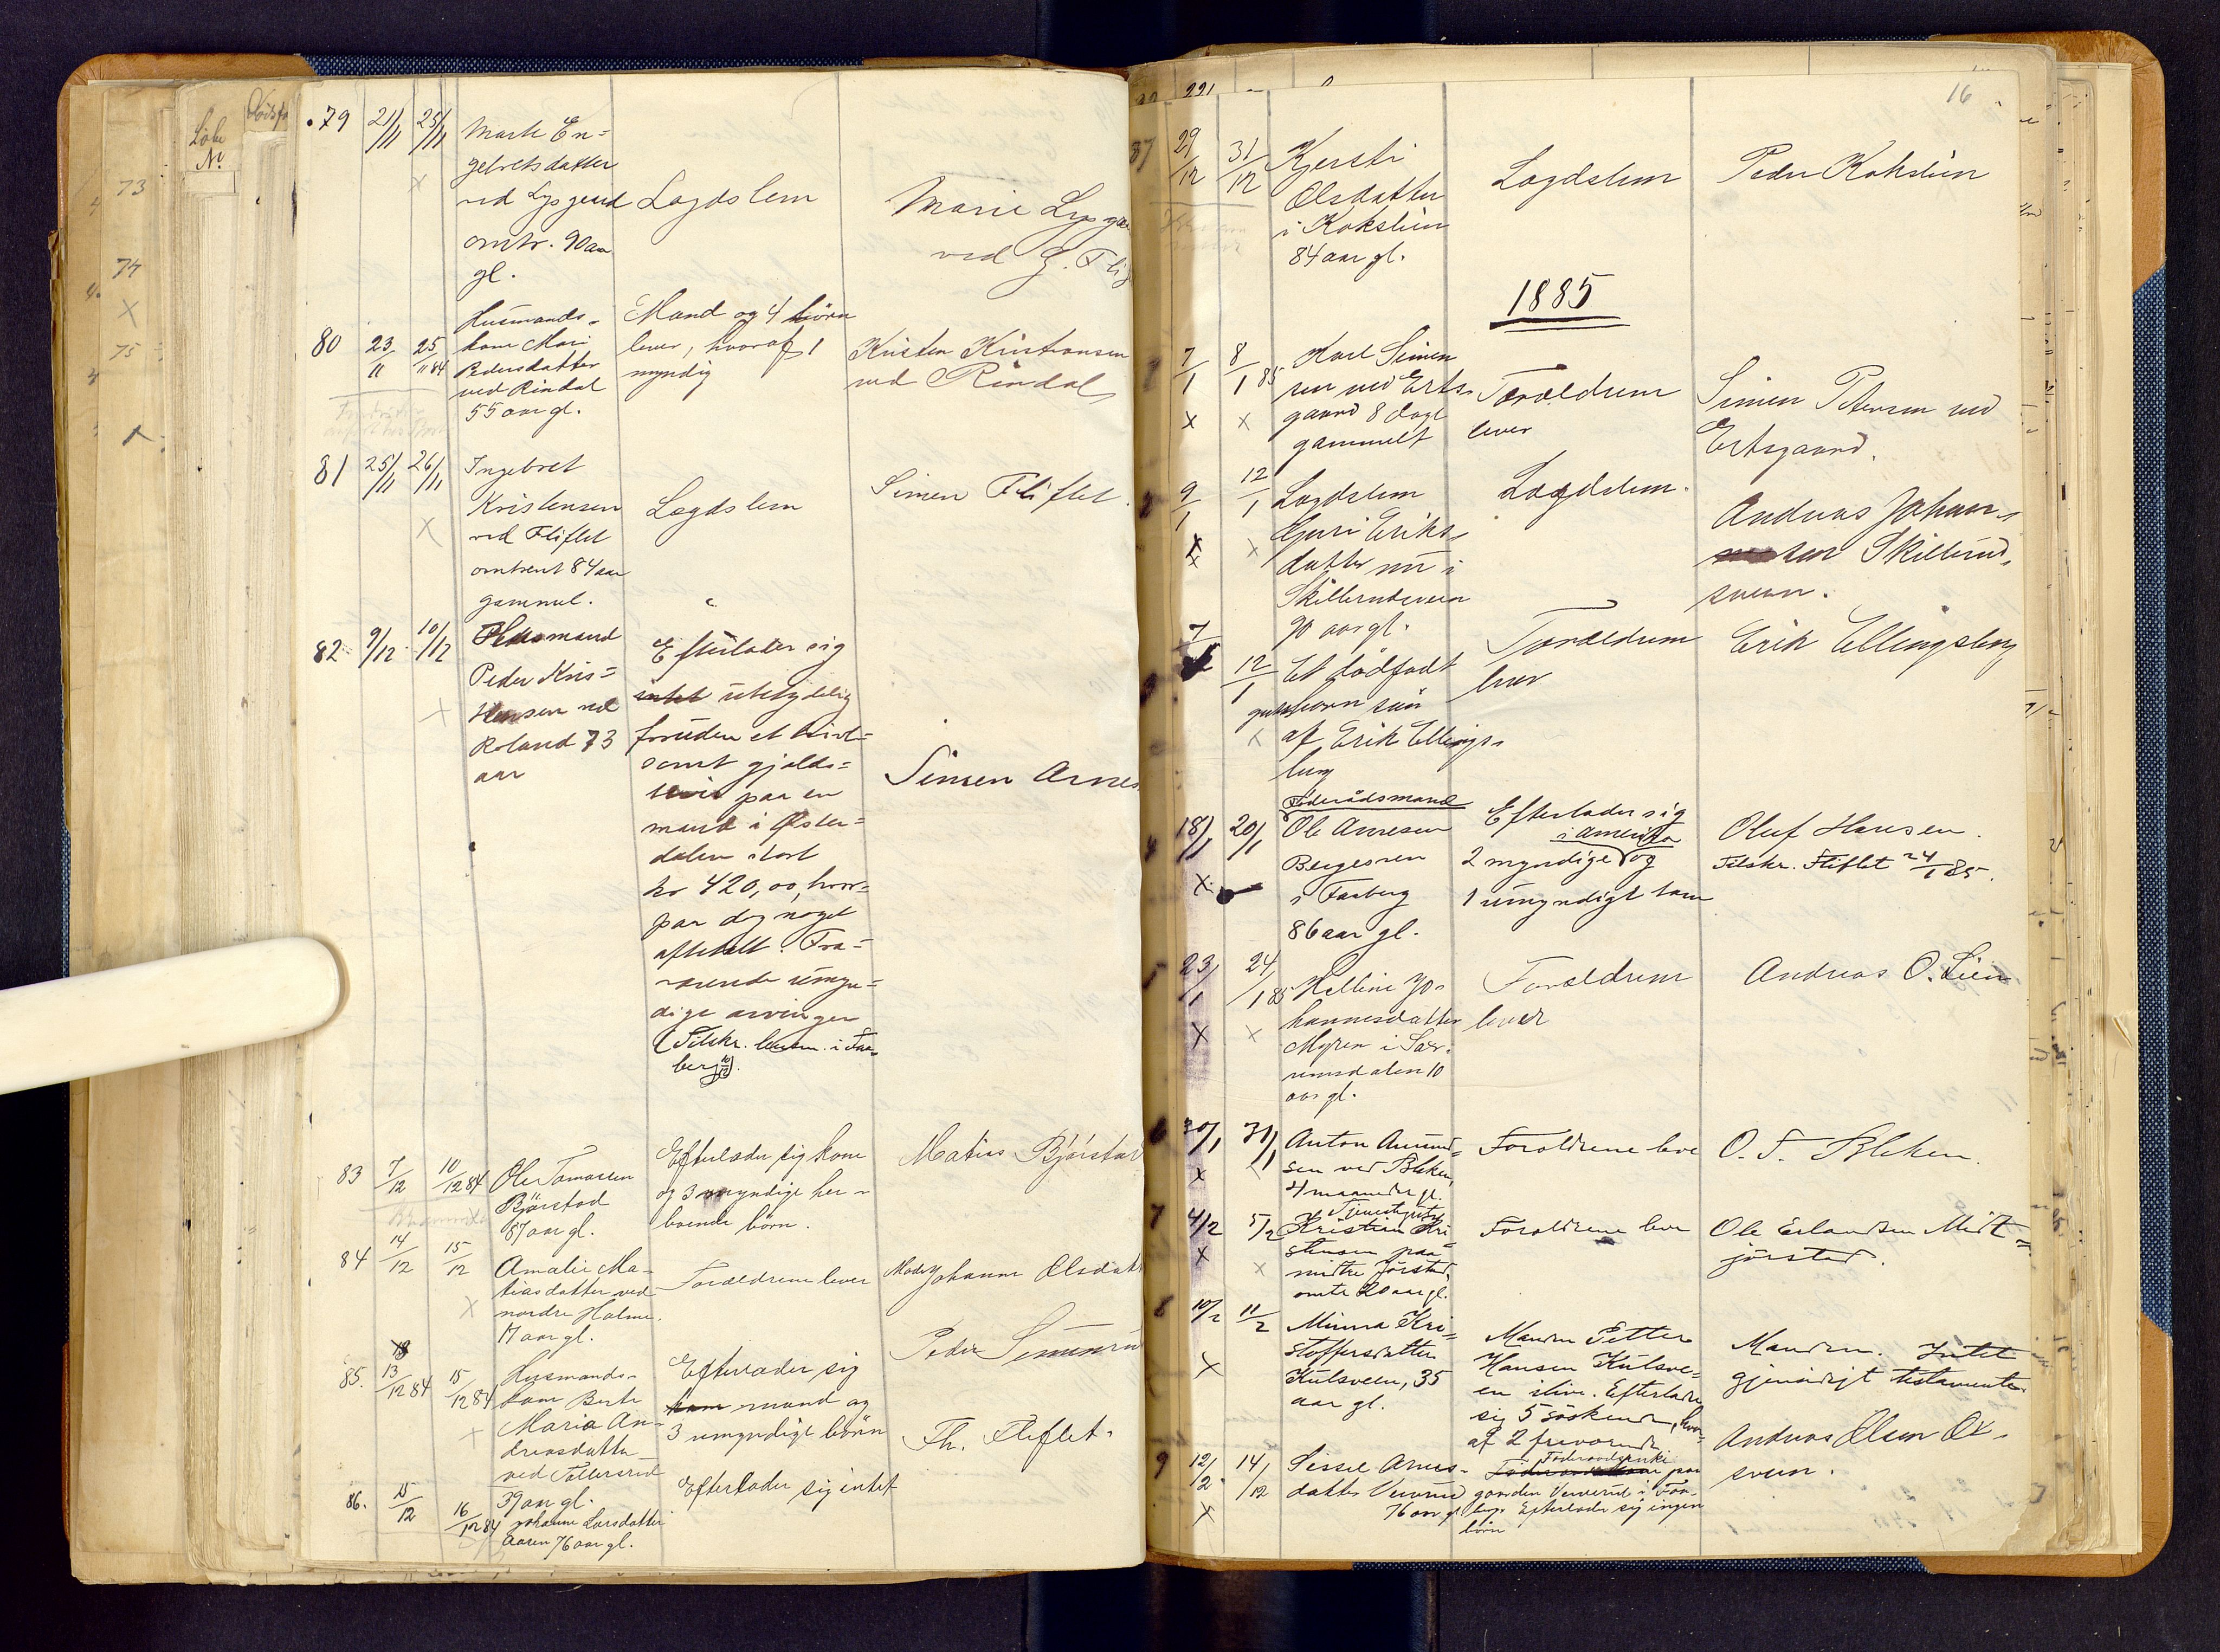 Löbe
No
Dödsfa
73
74
75
79 21/11 25/11 Marte En=
gebretsdatter
ved Lysgaard Lægdslem Marie Lysgaa
omtr. 90 aar
gl. ved G. Flif
80 23/11 25/11 84 Husmands-
kone Mari
Pedersdatter
ved Rindal
55 aar gl.
Mand og 4 börn
lever, hvoraf 1
myndig
Kristen Kristiansen
ved Rindal
81 25/11 26/11 Ingebret
Kristensen
ved Fliflet
omtrent 84 aar
gammel.
Lægdslem
Simen Fliflet
82 9/12 10/12 Husmand
Peder Kris=
tensen ved
Roland 73
aar
Efterlader sig
intet ubetydelig
foruden et
samt gjelds=
bevis paa en
mand i Öster=
dalen stort
kr 420,00, hvor=
paa dog noget
afbetalt. Fra=
værende umyn=
dige arvinger
(Tilskr. lensm. i Faa=
berg).
Simen Arnes
83 7/12 10/12 84 Ole Tomassen
Björstad
87 aar gl.
Efterlader sig kone
og 3 myndige her-
boende börn.
Matias Björstad
84 14/12 15/12 Amalie Ma-
tiasdatter ved
nordre Holme
17 aar gl.
Forældrene lever
Moder Johanne Olsdatt
85. 13/12 84 15/12 84 Husmands-
kone Berte
Maria An-
dreasdatter
ved Tollersrud
39 aar gl.
Efterlader sig
kone mand og
3 umyndige börn
Peder Simenru
86. 15/12 16/12 84 Johanne Larsdatter
Aasen 76 aar gl.
Efterlader sig intet
Th. Fliflet.
16
87 29/12 31/12 Kjersti
Olsdatter
i Kokslien
84 aar gl.
Lægdslem
Peder Kokslien
1885
1 7/1 8/1 85 Karl Simen
sen ved Erts-
gaard 8 dage
gammelt
Forældrene
lever
Simen Petersen ved
Ertsgaard.
2 9/1 12/1 Lægdslem
Guri Eriks-
datter nu i
Skillerudsveen
90 aar gl.
Lægdslem.
Andreas Johan-
nesen Skillerud-
sveen.
3 7/1 12/1 Et dödfödt
guttebarn sön
af Erik Ellings-
berg
Forældrene
lever
Erik Ellingsberg
4 18/1 20/1 Föderådsmand
Ole Arnesen
Bergeseen
i Faaberg
86 aar gl.
Efterlader sig
i Amerika
2 myndige og
1 umyndigt barn
Oluf Hansen.
Tilskr. Fliflet 24/1 85.
5 23/1 24/1 85 Helline Jo-
hannesdatter
Myren i Sax-
rumsdalen 10
aar gl.
Forældrene
lever
Andreas O. Lien
6 30/1 31/1 Anton Amund=
sen ved Bleken,
4 maaneder gl.
Forældrene leve
O. F. Bleken.
7 4/2 5/2 Tjenestegut
Kristian Kri=
stensen paa
midtre Jörstad,
omtr 20 aar gl.
Forældrene leve
Ole Erlandsen Midt=
jörstad.
8 10/2 11/2 Minna Kri=
stoffersdatter
Kulsveen, 35
aar gl.
Manden Petter
Hansen Kulsve=
en ilive. Efterlader
sig 5 söskende, hvor=
af 2 fraværende.
Manden. Intet
gjensidigt testamente.
9 12/2 14/12 Sissel Arnes-
datter Ververud
76 aar gl
Föderaadsenke
Föderaadskone paa
gaarden Ververud i Faa-
berg. Efterlader sig ingen
börn
Andreas Olsen Ox-
sveen.